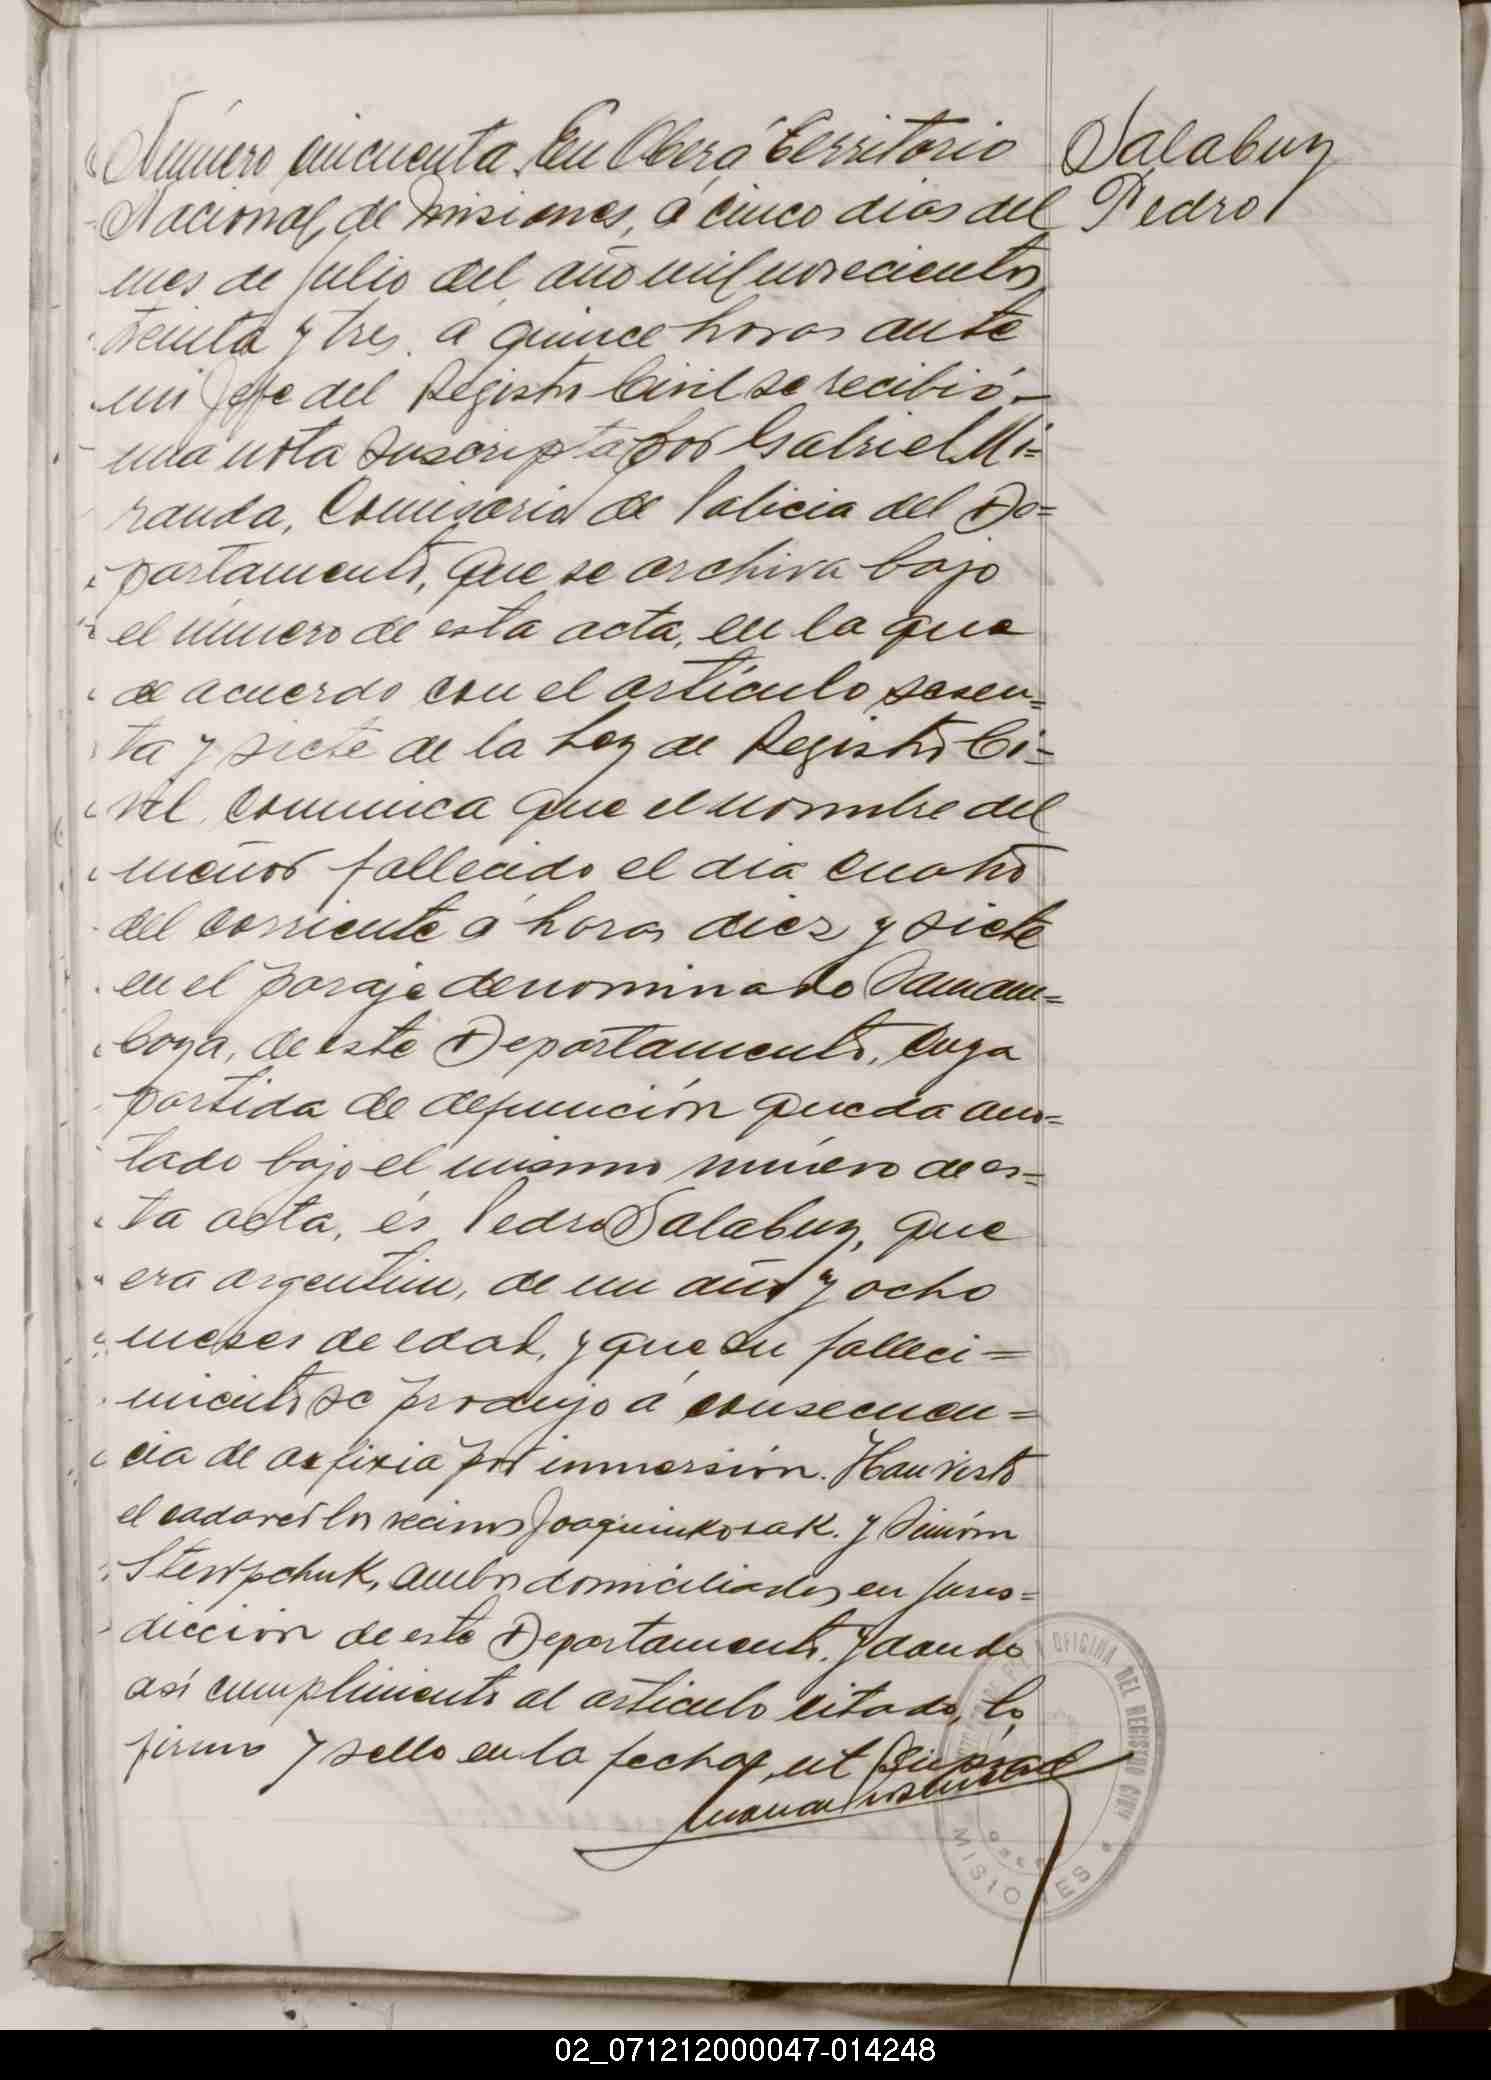 Número cincuenta. En Oberá Territorio
Nacional de Misiones, á cinco dias del
mes de Julio del año mil novecientos
treinta y tres á quince horas ante
mi Jefe del Registro Civil se recibió
una nota suscripta por Gabriel Mi=
randa, Comisario de Policia del De=
partamento, que se archiva bajo
el número de esta acta, en la que
de acuerdo con el artículo sesen=
ta y siete de la Ley de Registro Ci=
vil comunica que el nombre del
menor fallecido el dia cuatro
del corriente á horas diez y siete
en el paraje denominado Samam=
baya, de este Departamento, cuya
partida de defunción queda ano=
tado bajo el mismo número de es=
ta acta, és Pedro Salabuy, que
era argentino, de un año y ocho
meses de edad, y que su falleci=
miento se produjo á consecuen=
cia de asfixia por inmersión. Han visto
el cadaver los vecinos Joaquin Kosak y Simón
domiciliados en juris=
dicción de este Departamento. Y dando
así cumplimiento al artículo citado, lo
firmo y sello en la fecha, ut supra
Salabuy
Pedro
OFICINA DEL REGISTRO CIVIL
MISIONES
02_071212000047-014248